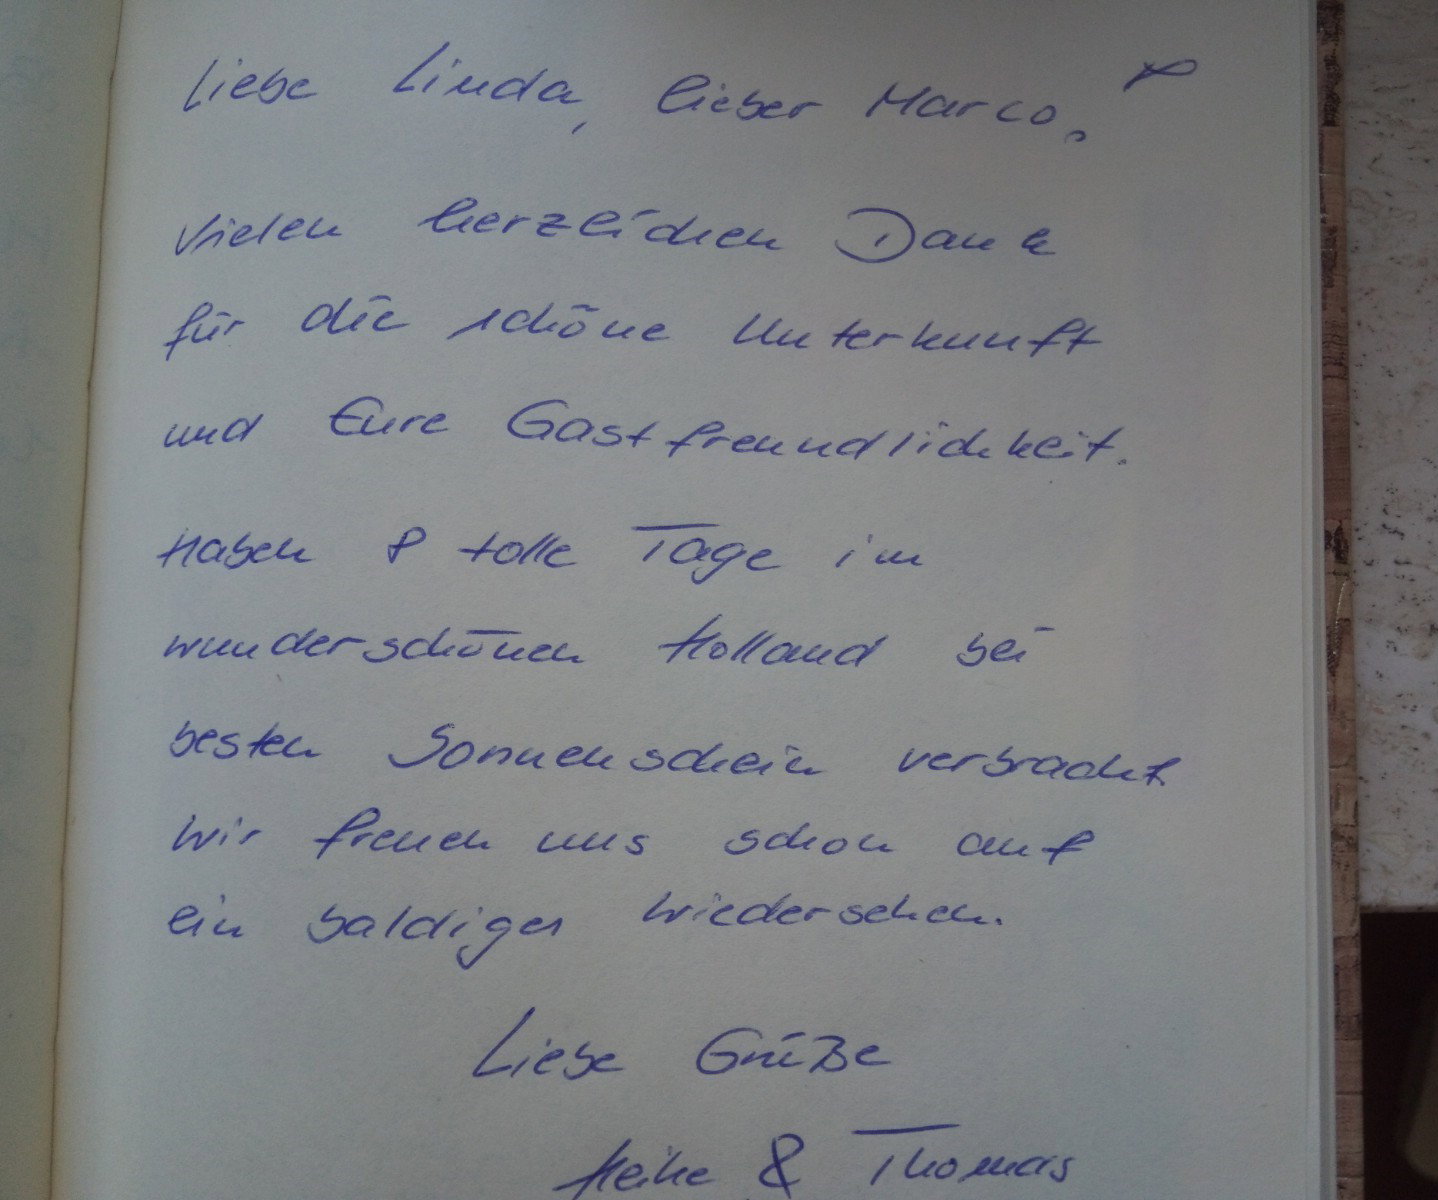 Liebe Linda, lieber Marco,
vielen herzlichen Dank
für die schöne Unterkunft
und Eure Gastfreundlichkeit.
Haben 8 tolle Tage im
wunderschönen Holland bei
besten Sonnenschein verbracht
Wir freuen uns schon auf
ein baldiges Wiedersehen.
Liebe Grüße
Heike & Thomas